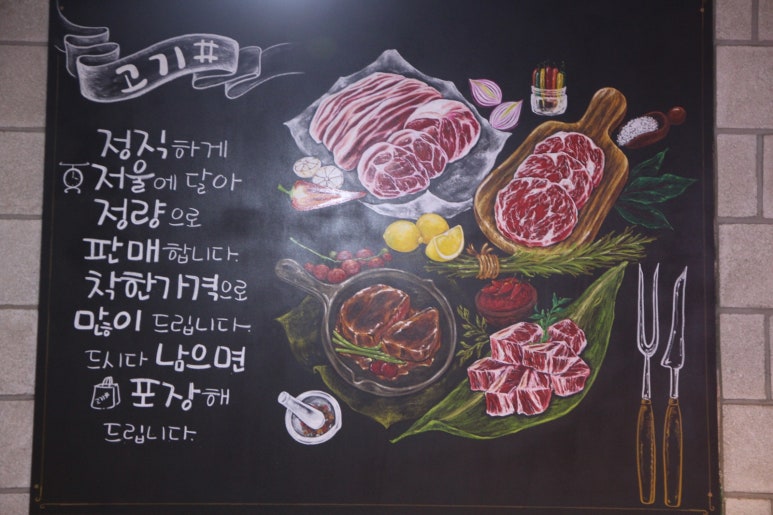 고기#
정직하게
저울에 달아
정량으로
판매합니다.
착한가격으로
많이 드립니다.
드시다 남으면
포장해
드립니다.